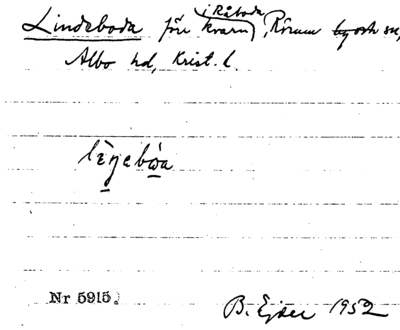 Lindeboda förr kvarn i Råboda, Rörum by och sn,
Albo hd, Krist. l.
Nr 5915.
B. Ejder 1952